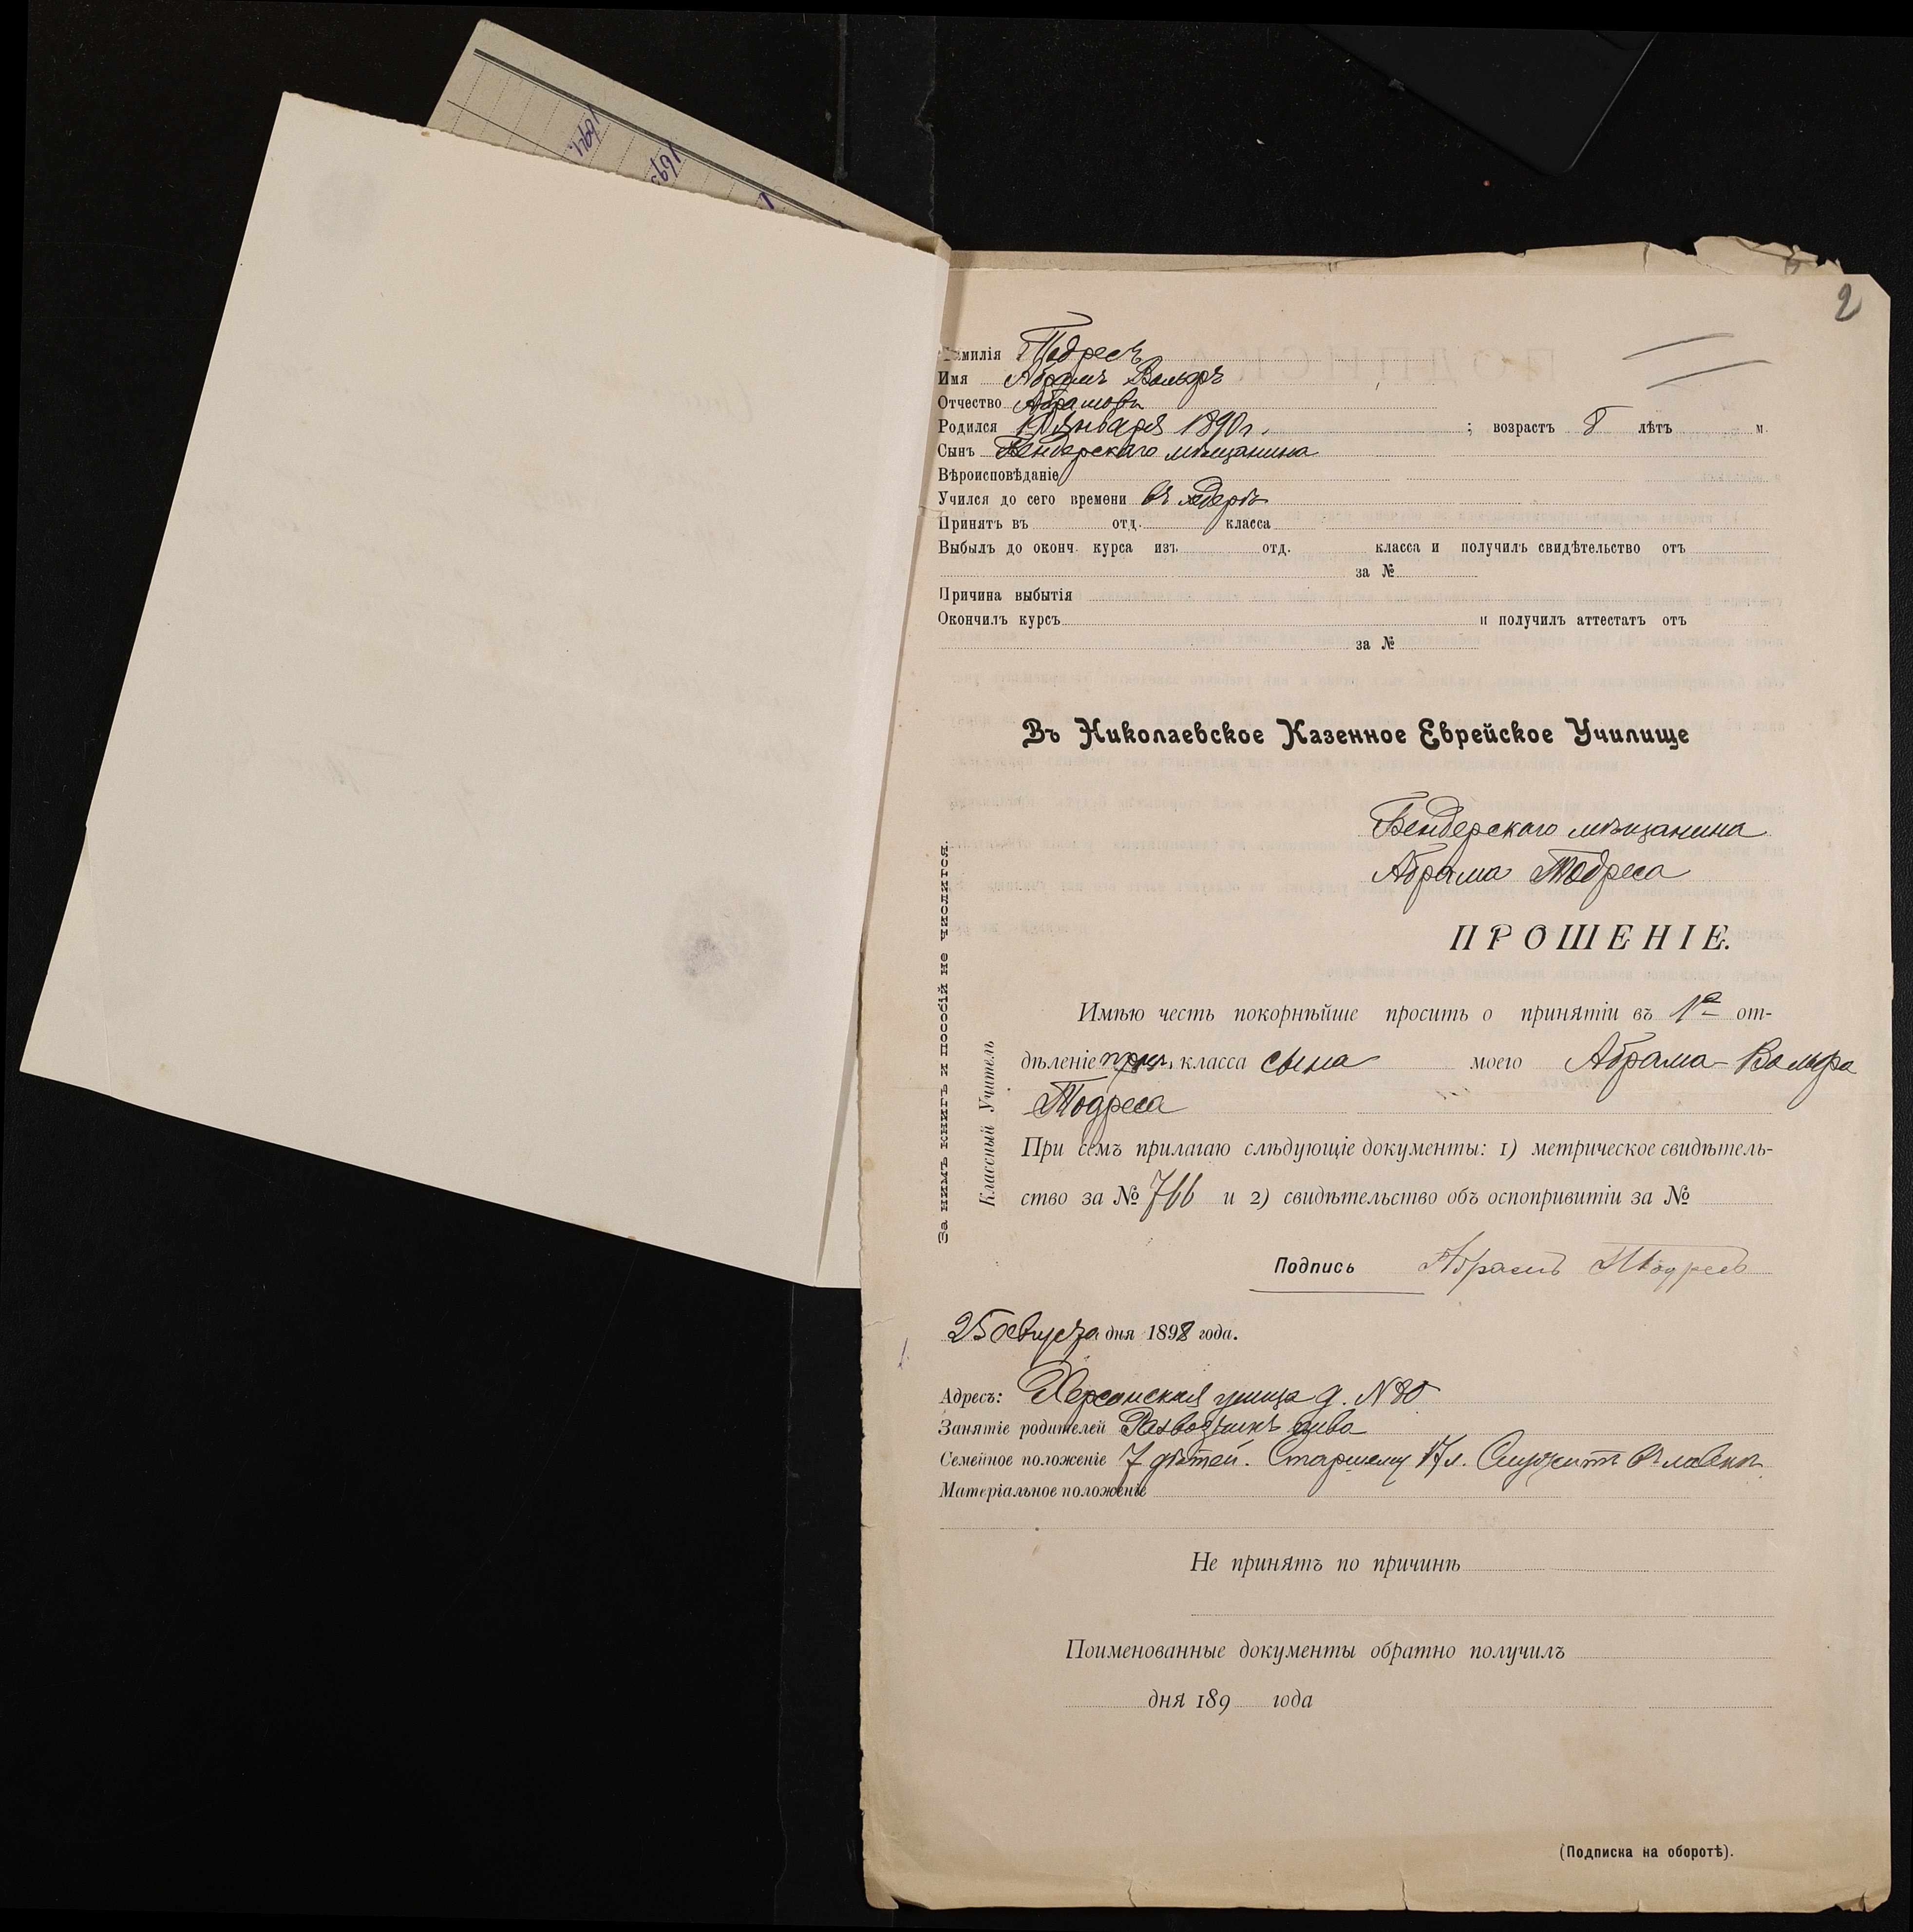 1894.
1893
2
Фамилія Тодресъ
Имя Абрамъ Вольфъ
Отчество Абрамовъ
Родился 10 Января 1890 г. ; возрастъ 8 лѣтъ м.
Сынъ Бендерскаго мѣщанина
Вѣроисповѣданіе
Учился до сего времени въ хедерѣ
Принятъ въ отд. класса
Выбылъ до оконч. курса изъ отд. класса и получилъ свидѣтельство отъ
за №
Причина выбытія
Окончилъ курсъ и получилъ аттестатъ отъ
за №
Въ Николаевское Казенное Еврейское Училище
Бендерскаго мѣщанина
Абрама Тодреса
ПРОШЕНІЕ.
Имѣю честь покорнѣйше просить о принятіи въ 1е от-
дѣленіе приг. класса сына моего Абрама-Вольфа
Тодреса
При семъ прилагаю слѣдующіе документы: 1) метрическое свидѣтель-
ство за № 766 и 2) свидѣтельство объ оспопривитіи за №
Подпись Абрамъ Тодресъ
25 августа дня 1898 года.
Адресъ: Херсонская улица д. N 80
Занятіе родителей Развозчикъ пива
Семейное положеніе 7 дѣтей. Старшему 17 л. Служитъ въ лавкѣ
Матеріальное положеніе
Не принятъ по причинѣ
Поименованные документы обратно получилъ
дня 189 года
(Подписка на оборотѣ).
За нимъ книгъ и пособій не числится.
Классный Учитель